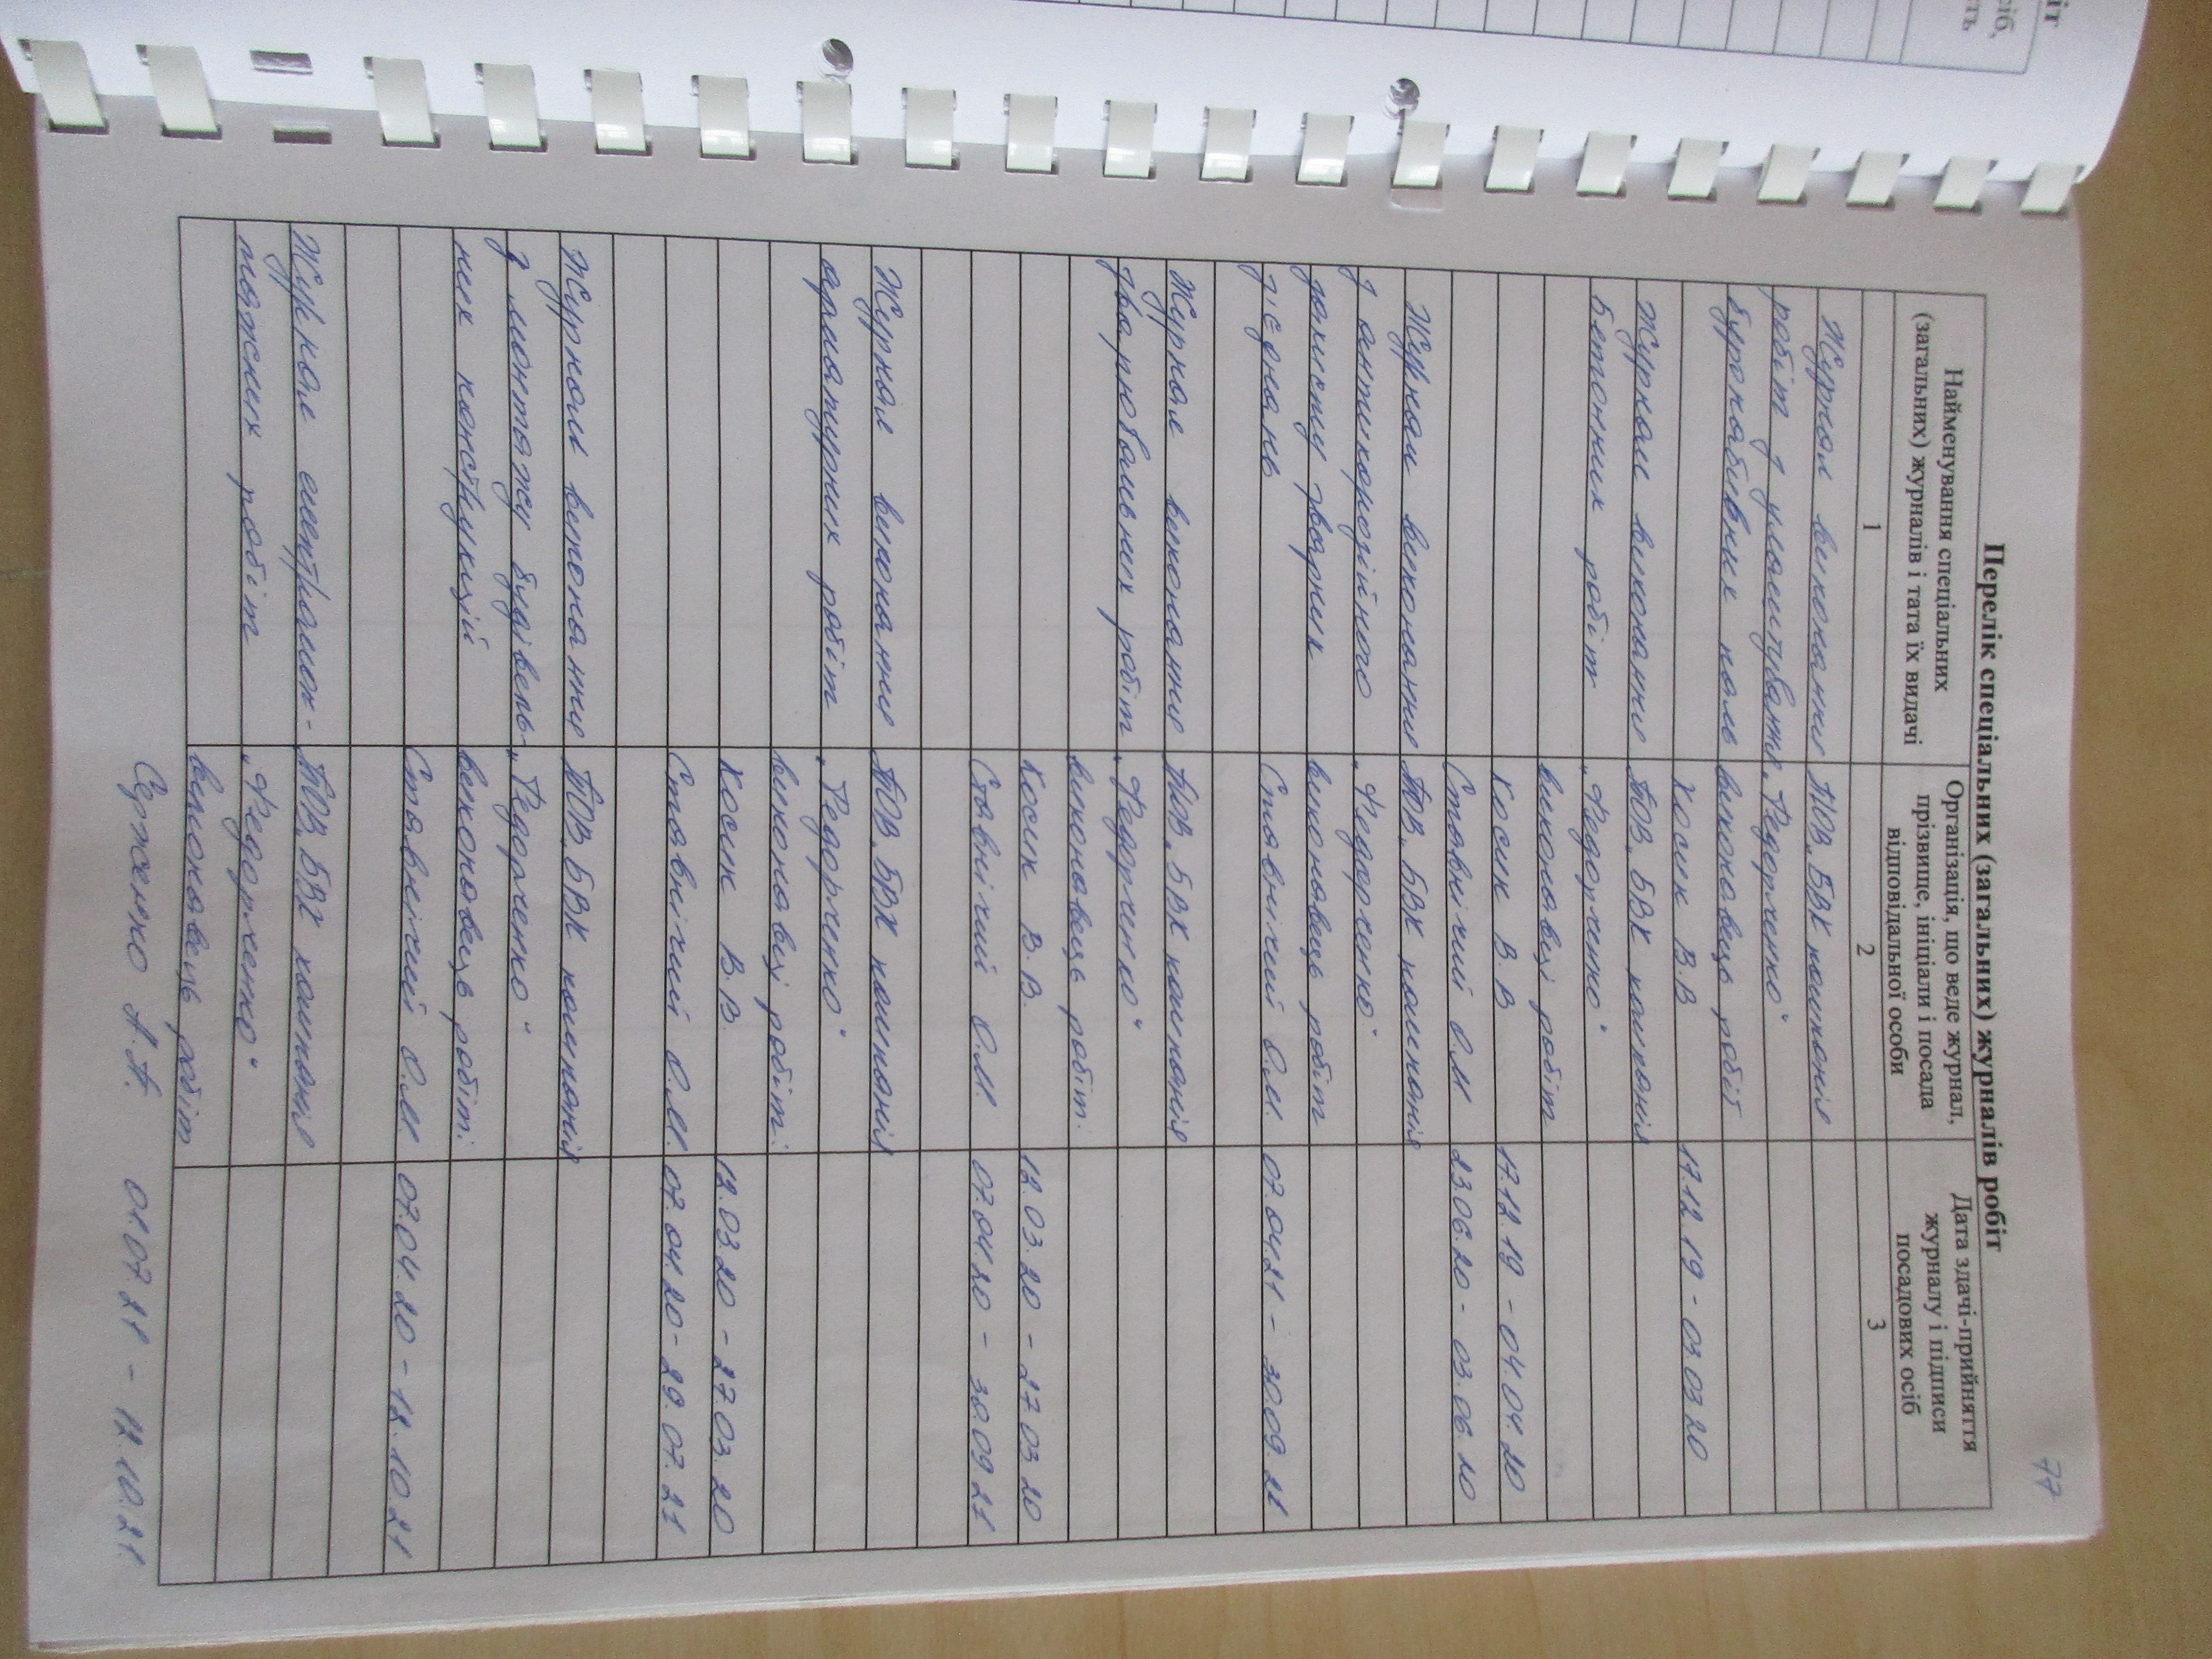 іт
сіб,
сть
77
Перелік спеціальних (загальних) журналів робіт
Найменування спеціальних
(загальних) журналів і тата їх видачі
Організація, що веде журнал,
прізвище, ініціали і посада
відповідальної особи
Дата здачі-прийняття
журналу і підписи
посадових осіб
1 2 3
Журнал виконання ТОВ „БВК компанія
робіт з улаштування „Федорченко"
буронабивних паль виконавець робіт
Косик В.В 17.12.19 - 03.03.20
Журнал виконання ТОВ „БВК компанія
бетонних робіт „Федорченко"
виконавці робіт
Косик В.В 17.12.19 - 04.04.20
Ставнічий О.М 23.06.20 - 03.06.20
Журнал виконання ТОВ „БВК компанія
з антикорозійного „Федорченко"
захисту зварних виконавець робіт
з'єднань Ставнічий О.М. 07.04.21 - 30.09.21
Журнал виконання ТОВ „БВК компанія
зварювальних робіт „Федорченко"
виконавець робіт:
Косик В.В. 12.03.20 - 27.03.20
Ставнічий О.М. 07.04.20 - 30.09.21
Журнал виконання ТОВ „БВК компанія
арматурних робіт „Федорченко"
виконавці робіт:
Косик В.В. 12.03.20 - 27.03.20
Ставнічий О.М. 07.04.20 - 29.07.21
Журнал виконання ТОВ „БВК компанія
з монтажу будівель- „Федорченко"
них конструкцій виконавець робіт:
Ставнічий О.М 07.04.20 - 12.10.21
Журнал електромон- ТОВ „БВК компанія
тажних робіт „Федорченко"
виконавець робіт
Сержемко А.А. 01.07.21 - 12.10.21.